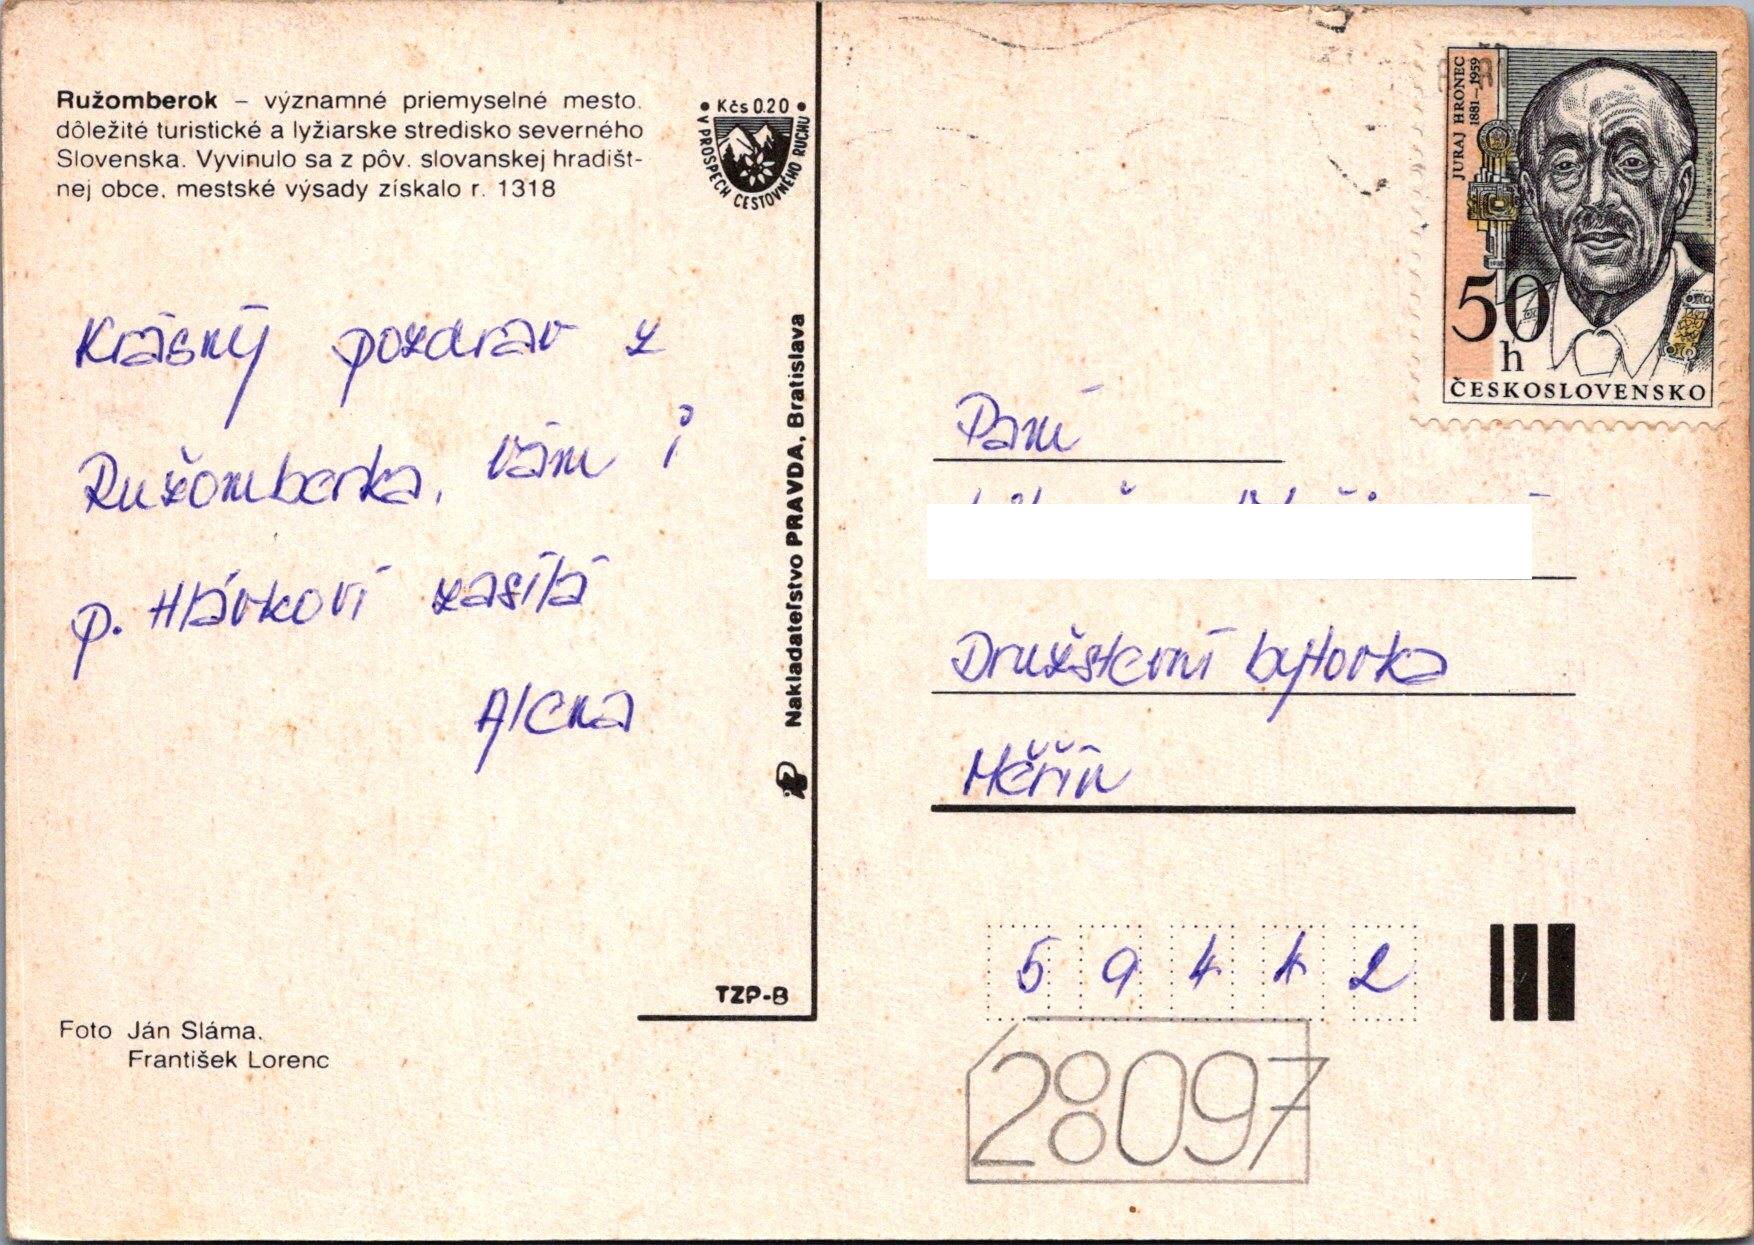 Ružomberok – významné priemyselné mesto,
dôležité turistické a lyžiarske stredisko severného
Slovenska. Vyvinulo sa z pôv. slovanskej hradišt-
nej obce, mestské výsady získalo r. 1318
• Kčs 0.20 •
V PROSPECH CESTOVNÉHO RUCHU
Krásný pozdrav z
Ružomberka, vám i
p. Hlávkovi zasílá
Alena
Foto Ján Sláma,
František Lorenc
TZP-B
Nakladateľstvo PRAVDA, Bratislava
JURAJ HRONEC
1881–1959
50
h
ČESKOSLOVENSKO
Paní
Družstevní bytovka
Měřín
59442
28097